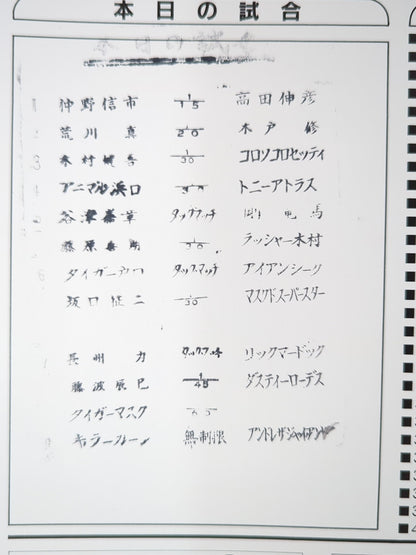 本日の試合
本日の試合
1 仲野信市 1/15 高田伸彦
2 荒川真 1/20 木戸修
3 木村健吾 1/30 コロソコロセッティ
4 アニマル浜口 トニーアトラス
谷津嘉章 タッグマッチ 剛竜馬
藤原喜明 1/30 ラッシャー木村
タイガー タッグマッチ アイアンシーク
坂口征二 1/30 マスクドスーパースター
長州力 タッグマッチ リックマードック
藤波辰巳 1/45 ダスティーローデス
タイガーマスク
キラーカーン 無制限 アンドレザジャイアント